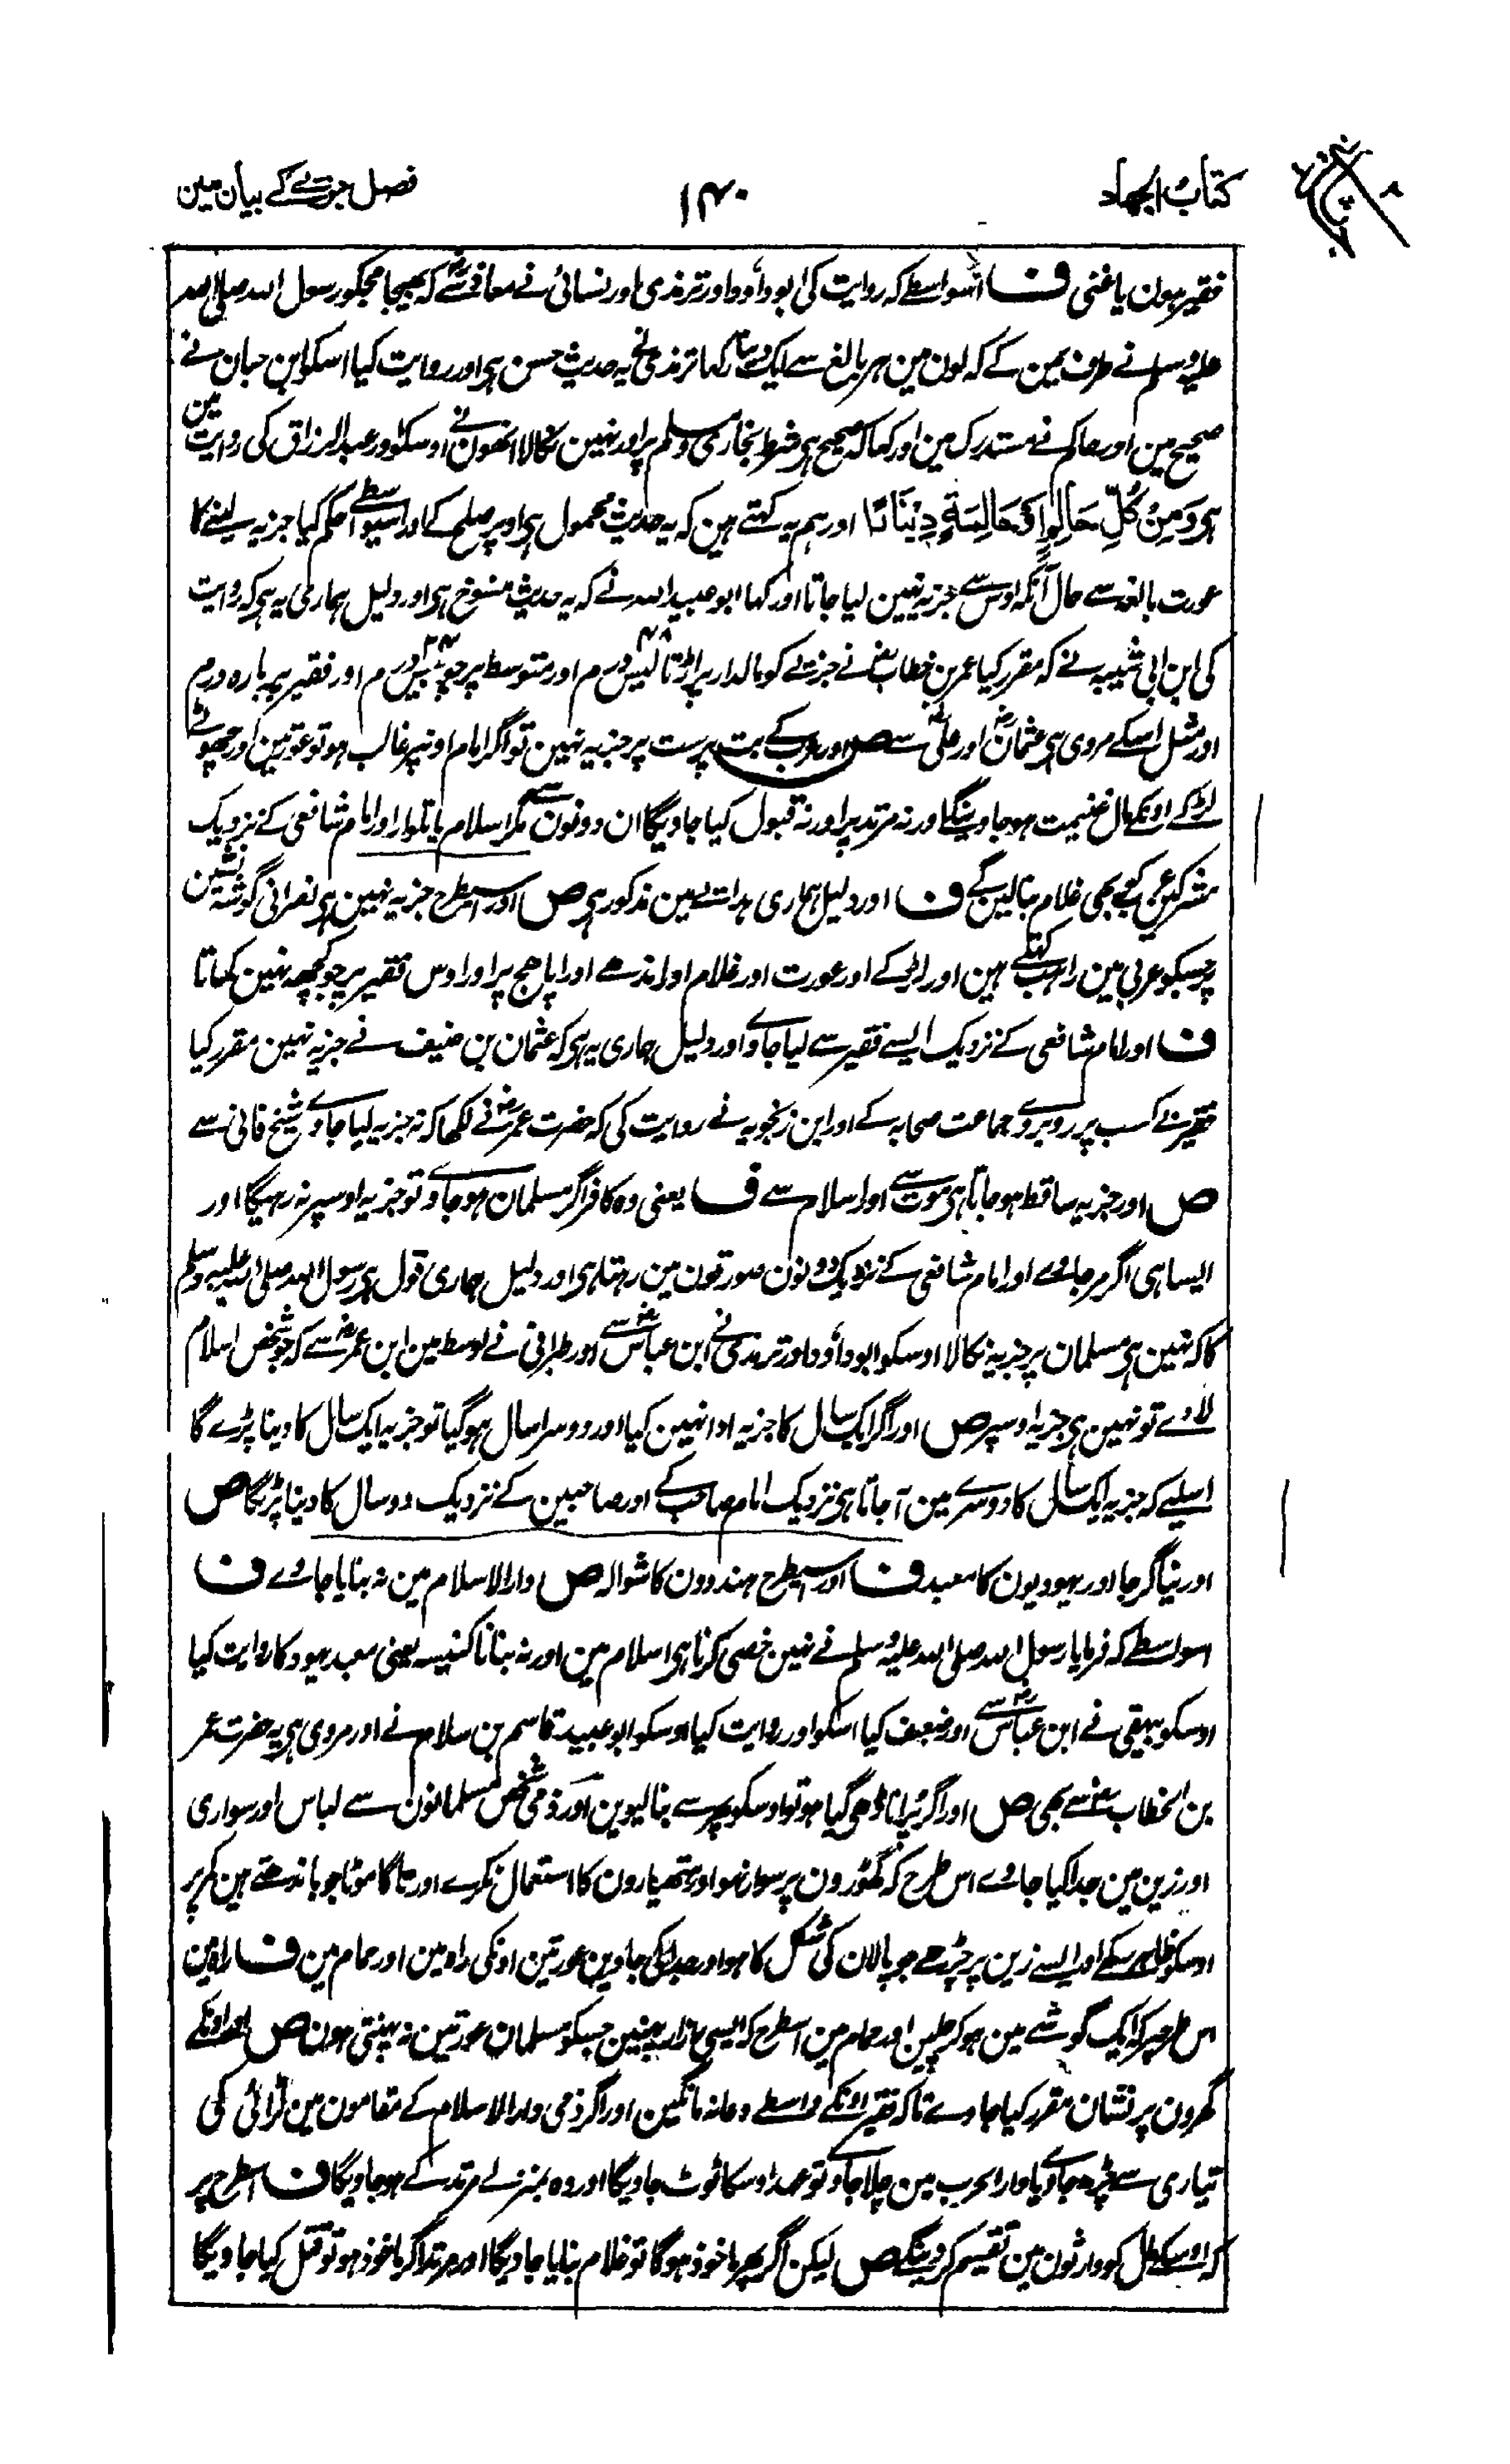 کتاب الجہاد ۱۴۰ فصل جزیے کے بیان مین
فقیر ہون یا غنی ف اسواسطے کہ روایت کی ابو داؤد اور ترمذی اور نسائی نے معاذؓ سے کہ بھیجا مجکو رسول اللہ صلی اللہ
علیہ وسلم نے طرف یمن کے کہ لون مین ہر بالغ سے ایک دینار کہا ترمذی نے یہ حدیث حسن ہی اور روایت کیا اسکو ابن حبان نے
صحیح مین اور حاکم نے مستدرک مین اور کہا کہ صحیح ہی شرط بخاری و مسلم پر اور نہین نکالا انھون نے اوسکو اور عبد الرزاق کی روایت مین
ہی وَمِنْ كُلِّ حَالِمٍ اَوْ حَالِمَةٍ دِيْنَارًا اور ہم یہ کہتے ہین کہ یہ حدیث محمول ہی اوپر صلح کے اور اسیواسطے حکم کیا جزیہ لینے کا
عورت بالغہ سے حال آنکہ اوس سے جزیہ نہین لیا جاتا اور کہا ابو عبید اللہ نے کہ یہ حدیث منسوخ ہی اور دلیل ہماری یہ ہی کہ روایت
کی ابن ابی شیبہ نے کہ مقرر کیا عمر بن خطابؓ نے جزیے کو مالدار پر اڑتالیس ۴۸ درم اور متوسط پر چوبیس ۲۴ درم اور فقیر پر بارہ درم
اور مثل اسکے مروی ہی عثمانؓ اور علیؓ سے ص اور عرب کے بت پرست پر جزیہ نہین تو اگر امام اونپر غالب ہو تو عورتین اور چھوٹے
لڑکے اونکے مال غنیمت ہوجاوینگے اور نہ مرتد پر اور نہ قبول کیا جاویگا ان دونون سے مگر اسلام یا تلوار اور امام شافعی کے نزدیک
مشرکین عرب کے بھی غلام بنا لین گے ف اور دلیل ہماری ہدایے مین مذکور ہی ص اور اسیطرح جزیہ نہین ہی نصرانی گوشہ نشین
پر جسکو عربی مین راہب کہتے ہین اور لڑکے اور عورت اور غلام اور اندھے اور اپاہج پر اور اوس فقیر پر جو کچھ نہین کماتا
ف اور امام شافعی کے نزدیک ایسے فقیر سے لیا جاوے اور دلیل ہماری یہ ہی کہ عثمان بن حنیف نے جزیہ نہین مقرر کیا
فقیر بے کسب پر روبروے جماعت صحابہ کے اور ابن زنجویہ نے روایت کی کہ حضرت عمرؓ نے لکھا کہ نہ جزیہ لیا جاوے شیخ فانی سے
ص اور جزیہ ساقط ہوجاتا ہی موت سے اور اسلام سے ف یعنی وہ کافر اگر مسلمان ہوجاوے تو جزیہ اوسپر نہ رہیگا اور
ایسا ہی اگر مر جاوے اور امام شافعی کے نزدیک دونون صورتون مین رہتا ہی اور دلیل ہماری قول ہی رسول اللہ صلی اللہ علیہ وسلم
کا کہ نہین ہی مسلمان پر جزیہ نکالا اوسکو ابو داؤد اور ترمذی نے ابن عباسؓ سے اور طبرانی نے اوسط مین ابن عمرؓ سے کہ جو شخص اسلام
لاوے تو نہین ہی جزیہ اوسپر ص اور اگر ایک سال کا جزیہ ادا نہین کیا اور دوسرا سال ہوگیا تو جزیہ ایک سال کا دینا پڑے گا
اسلیے کہ جزیہ ایک سال کا دوسرے مین آجاتا ہی نزدیک امام صاحب کے اور صاحبین کے نزدیک دو سال کا دینا پڑیگا ص
اور نیا گرجا اور یہودیون کا معبد ف اور اسیطرح ہندوون کا شوالہ ص دار الاسلام مین نہ بنایا جاوے ف
اسواسطے کہ فرمایا رسول اللہ صلی اللہ علیہ وسلم نے نہین خصی کرنا ہی اسلام مین اور نہ بنانا کنیسہ یعنی معبد یہود کا روایت کیا
اوسکو بیہقی نے ابن عباسؓ سے اور ضعیف کیا اسکو اور روایت کیا اوسکو ابو عبید قاسم بن سلام نے اور مروی ہی یہ حضرت عمر
بن الخطابؓ سے بھی ص اور اگر پرانا ڈھ گیا ہو تو اوسکو پھر سے بنا لیوین اور ذمی شخص مسلمانون سے لباس اور سواری
اور زین مین جدا کیا جاوے اس طرح کہ گھوڑون پر سوار نہو اور ہتھیارون کا استعمال نکرے اور تاگا موٹا جو باندھتے ہین کمر پر
اوسکو ظاہر رکھے اور ایسے زین پر چڑھے جو پالان کی شکل کا ہو اور جدا کی جاوین عورتین اونکی راہ مین اور حمام مین ف راہ مین
اس طرحپر کہ ایک گوشے مین ہو کر چلین اور حمام مین اسطرح کہ ایسی ازار پہنین جسکو مسلمان عورتین نہ پہنتی ہون ص اور اونکے
گھرون پر نشان مقرر کیا جاوے تاکہ فقیر اونکے واسطے دعا نہ مانگین اور اگر ذمی دار الاسلام کے مقامون مین لڑائی کی
تیاری سے چڑھ جاوے یا دار الحرب مین چلا جاوے تو عہد اوسکا ٹوٹ جاویگا اور وہ بمنزلے مرتد کے ہوجاویگا ف اسطرح پر
کہ اوسکے مال کو وارثون مین تقسیم کر دینگے ص لیکن اگر پھر ماخوذ ہوگا تو غلام بنایا جاویگا اور مرتد اگر ماخوذ ہو تو قتل کیا جاویگا